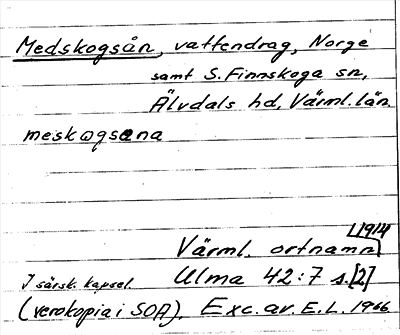 Medskogsån, vattendrag, Norge
samt S. Finnskoga sn,
Älvdals hd, Värml. län
meskωgsəna
1914
Värml. ortnamn
Ulma 42:7 s.[2]
I särsk. kapsel.
(xerokopia i SOA). Exc. av. E.L. 1966